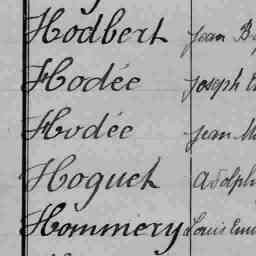 Hodbert Jean B
Hodée Joseph
Hodée Jean M
Hoguet Adolph
Hommery Louis